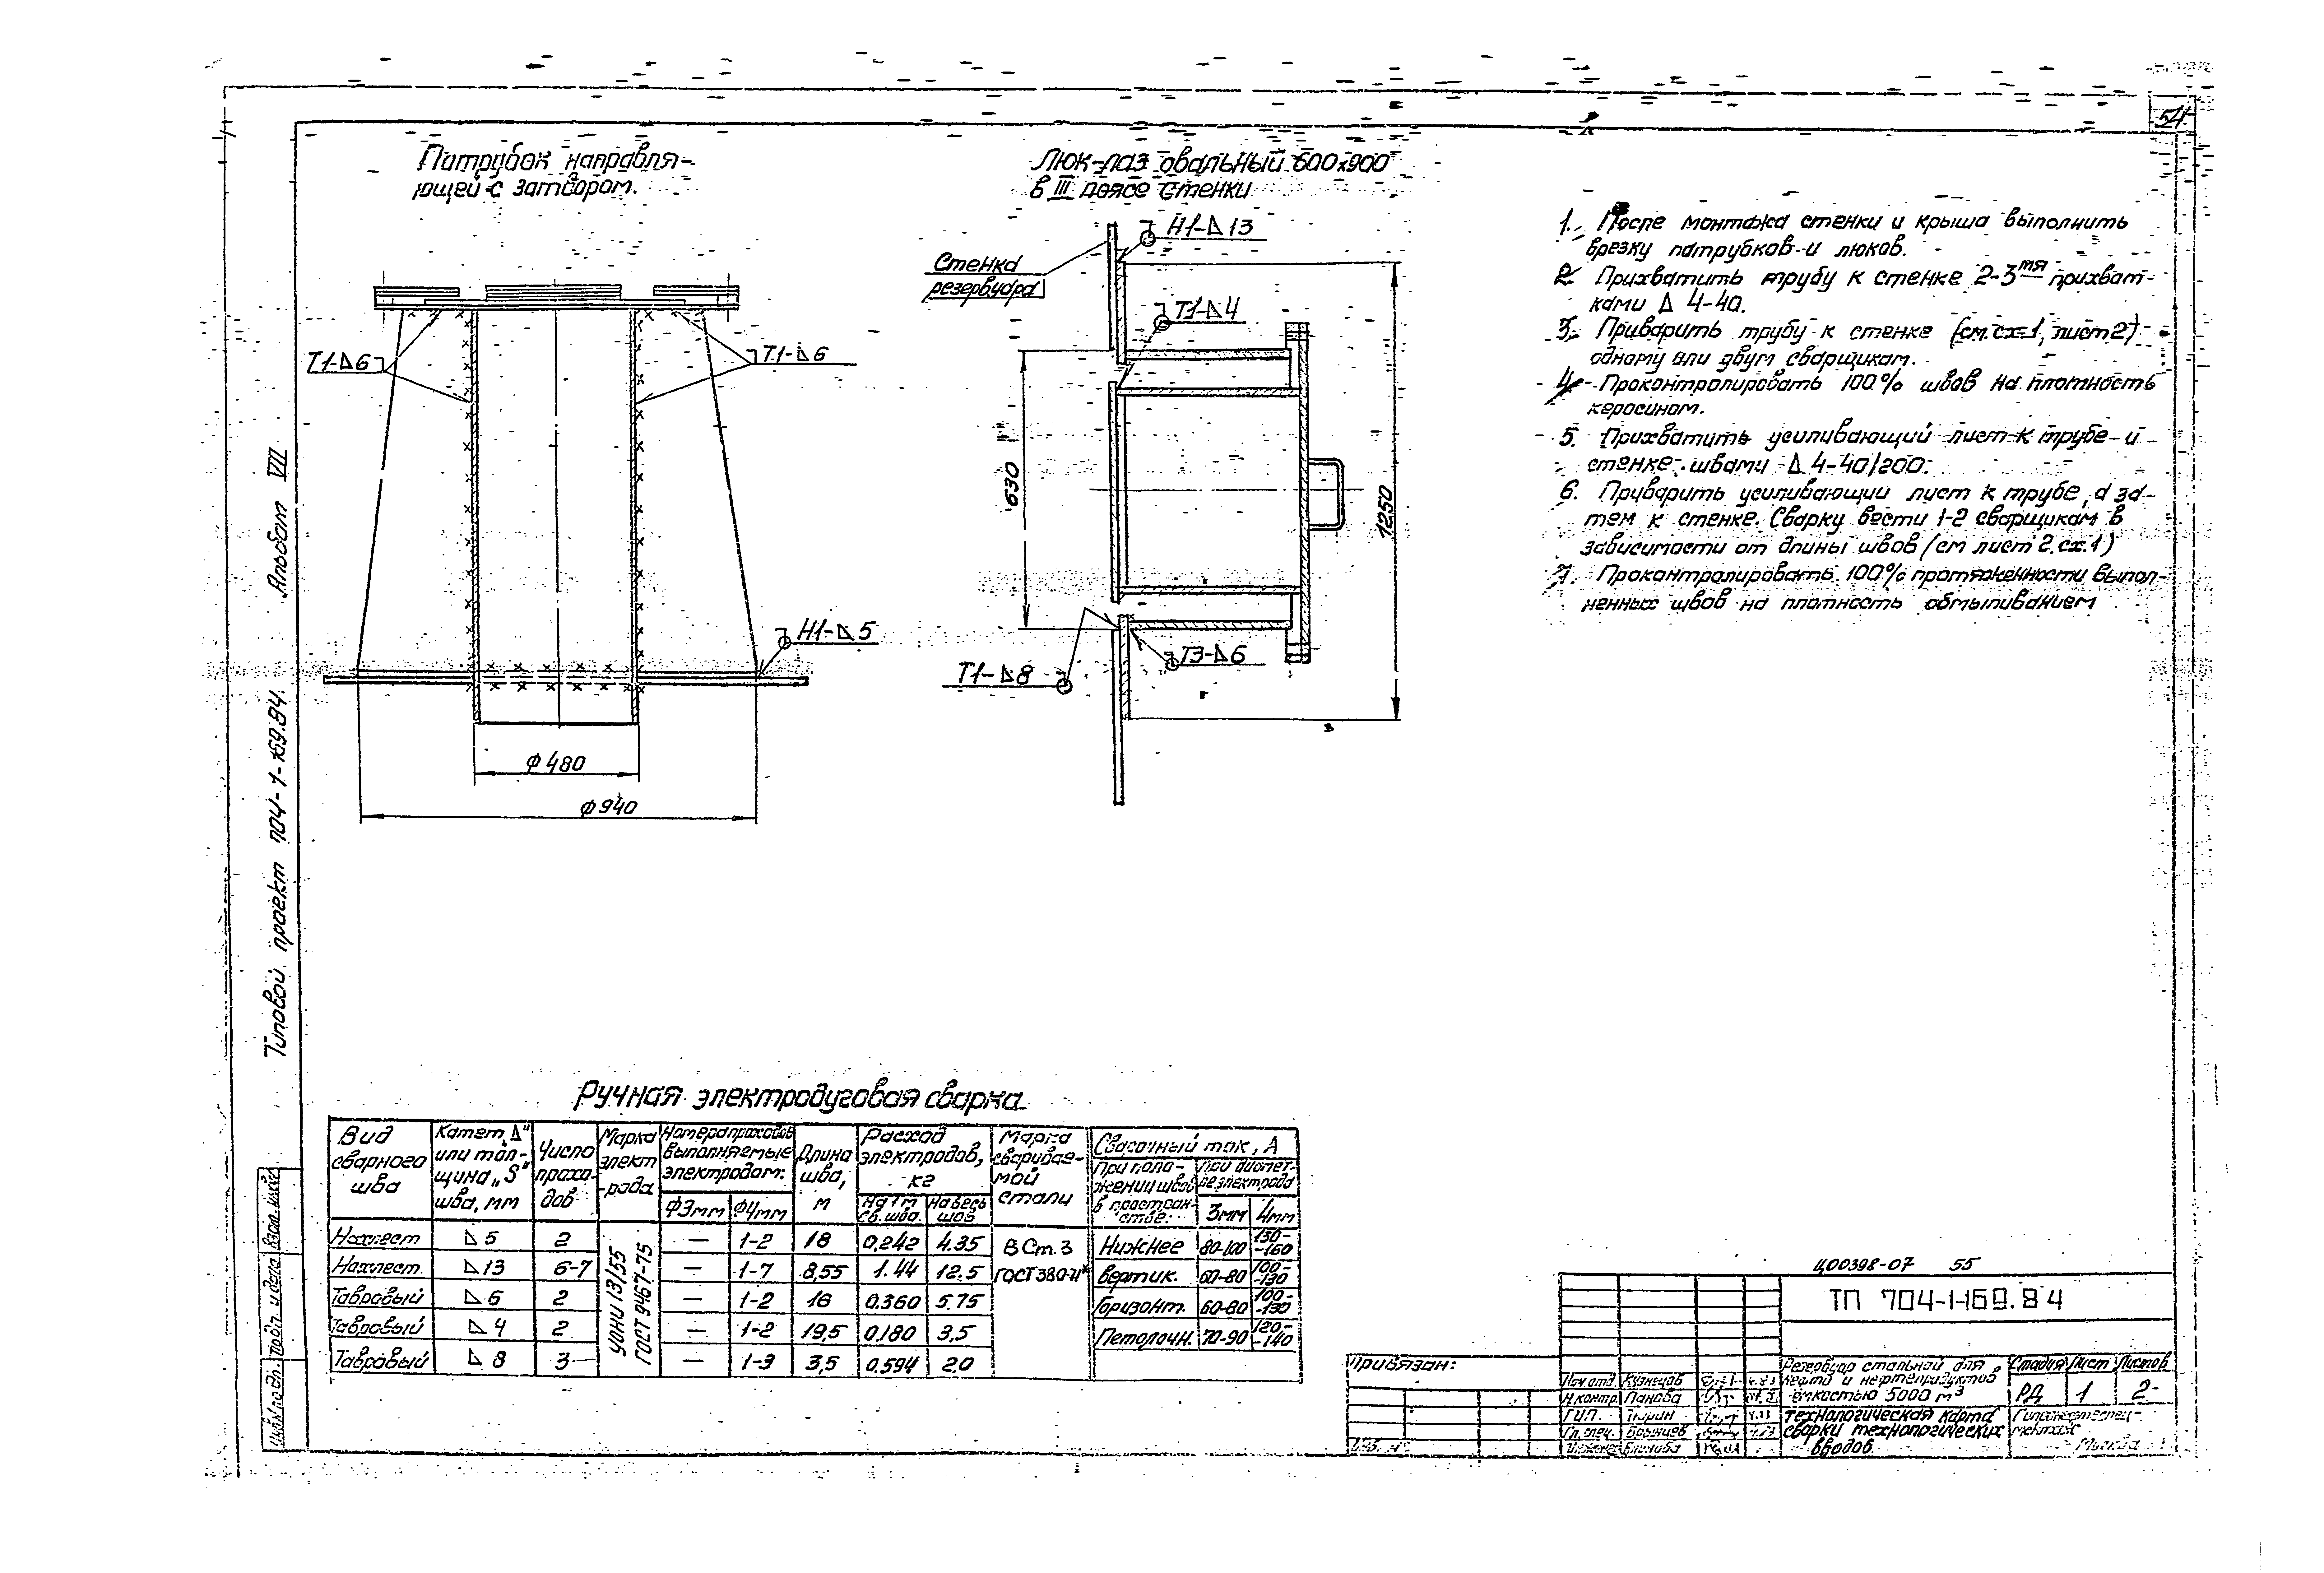 54
Патрубок направля-
ющей с затвором.
Т1-⊿6
Т1-⊿6
Н1-⊿5
ф480
ф940
Люк-лаз овальный 600х900
в III поясе стенки
Стенка
резервуара
Н1-⊿13
Т1-⊿4
630
1250
Т3-⊿6
Т1-⊿8
1. После монтажа стенки и крыша выполнить
врезку патрубков и люков.
2. Прихватить трубу к стенке 2-3мя прихват-
ками ⊿ 4-40.
3. Приварить трубу к стенке (см. сх-1, лист 2)
одному или двум сварщикам.
4. Проконтролировать 100% швов на плотность
керосином.
5. Прихватить усиливающий лист к трубе и
стенке швами ⊿ 4-40/200.
6. Приварить усиливающий лист к трубе, а за-
тем к стенке. Сварку вести 1-2 сварщикам в
зависимости от длины швов (см лист 2. сх.1)
7. Проконтролировать 100% протяженности выпол-
ненных швов на плотность обмыливанием
Альбом VII
Типовой проект 704-1-169.84.
Взам. инв.№
Подп. и дата
Инв.№ подл.
Ручная электродуговая сварка
Вид сварного шва | Катет „⊿" или тол-щина „S" шва, мм | Число прохо-дов | Марка элект-рода | Номера проходов выполняемые электродом: | Длина шва, м | Расход электродов, кг | Марка сваривае-мой стали | Сварочный ток, А
ф3мм | ф4мм | На 1 м св. шва. | На весь шов | При поло-жении швов в простран-стве: | При диамет-ре электрода
3мм | 4мм
Нахлест | ⊿ 5 | 2 | УОНИ 13/55 ГОСТ 9467-75 | — | 1-2 | 18 | 0,242 | 4.35 | В Ст. 3 | Нижнее | 80-100 | 130--160
Нахлест. | ⊿13 | 6-7 | — | 1-7 | 8,55 | 1.44 | 12.5 | ГОСТ 380-71* | Вертик. | 60-80 | 100--130
Тавровый | ⊿6 | 2 | — | 1-2 | 16 | 0.360 | 5.75 | Горизонт. | 60-80 | 100--130
Тавровый | ⊿4 | 2 | — | 1-2 | 19,5 | 0.180 | 3,5 | Потолочн. | 70-90 | 120--140
Тавровый | ⊿ 8 | 3 | — | 1-3 | 3,5 | 0.594 | 2.0
Ц00398-07 55
ТП 704-1-169.84
Привязан:
Нач.отд. Кузнецов
Н.контр. Панова
ГИП. Тюрин
Гл. спец.
Резервуар стальной для
нефти и нефтепродуктов
емкостью 5000 м³
Стадия Лист Листов
РД 1 2
Технологическая карта
сварки технологических
вводов
Гипронефтеспец-
монтаж
Москва
Инв. №